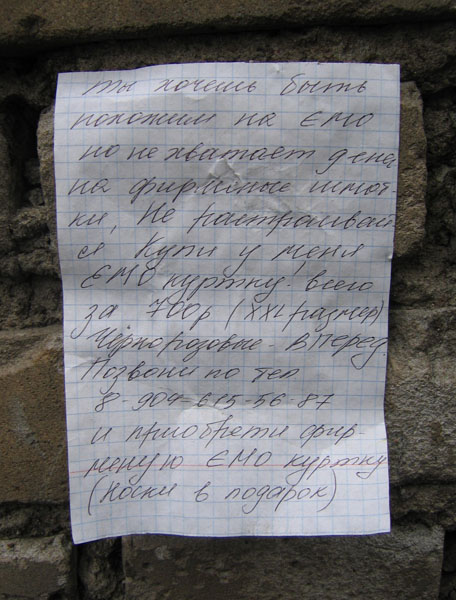 ты хочешь быть
похожим на ЕМО
но не хватает денег
на фирменные шмот-
ки, Не растраивай
ся Купи у меня
ЕМО куртку. всего
за 700р (XXL размер)
Чёрнорозовые - Вперед.
Позвони по тел
8-904-615-56-87
и приобрети фир-
меную ЕМО куртку
(Носки в подарок)